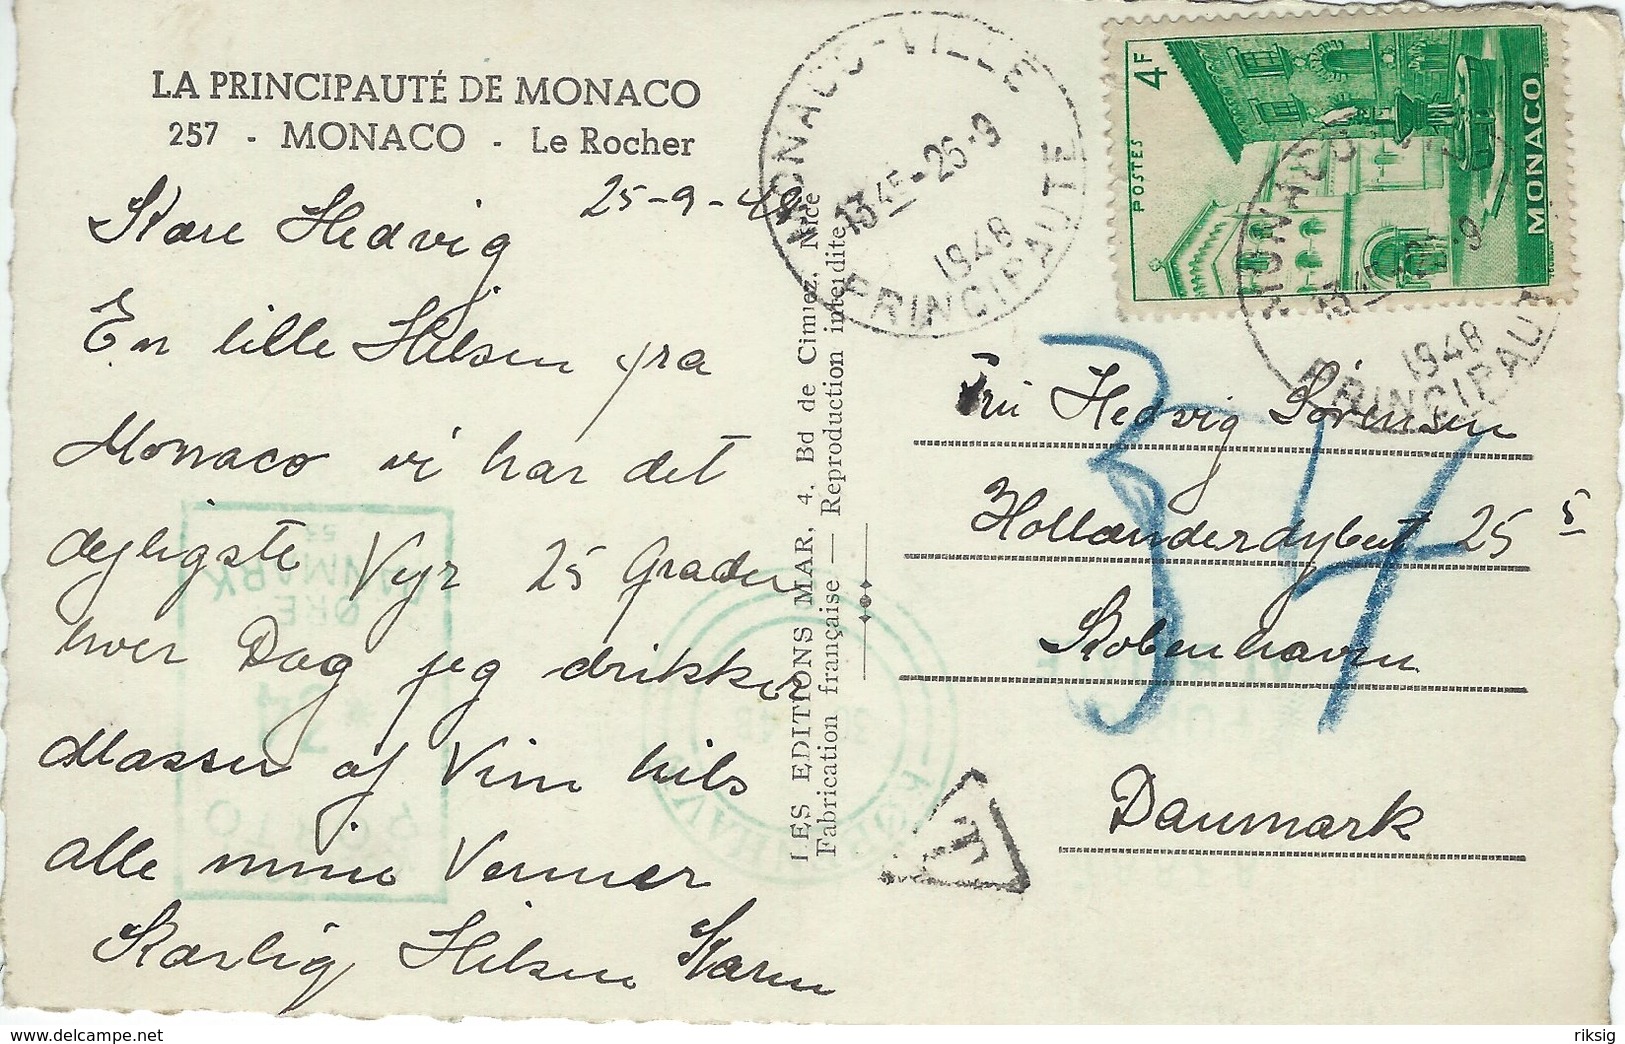 LA PRINCIPAUTÉ DE MONACO
257 - MONACO - Le Rocher
25-9-48
Kære Hedvig
En lille Hilsen fra
Monaco vi har det
dejligste Vejr 25 Grader
hver Dag jeg drikker
Masser af Vin hils
alle mine Venner
Kærlig Hilsen Karen
LES EDITIONS MAR, 4, Bd de Cimiez, Nice
Fabrication française — Reproduction interdite
MONACO-VILLE
13 45 - 26-9
1948
PRINCIPAUTÉ
4F
POSTES
MONACO
MONACO
13 45
-9
1948
PRINCIPAUT
34
Fru Hedvig Sørensen
Hollænderdybet 25 5
København
Danmark
T
DANMARK
ØRE
34
PORTO
www.delcampe.net
riksig